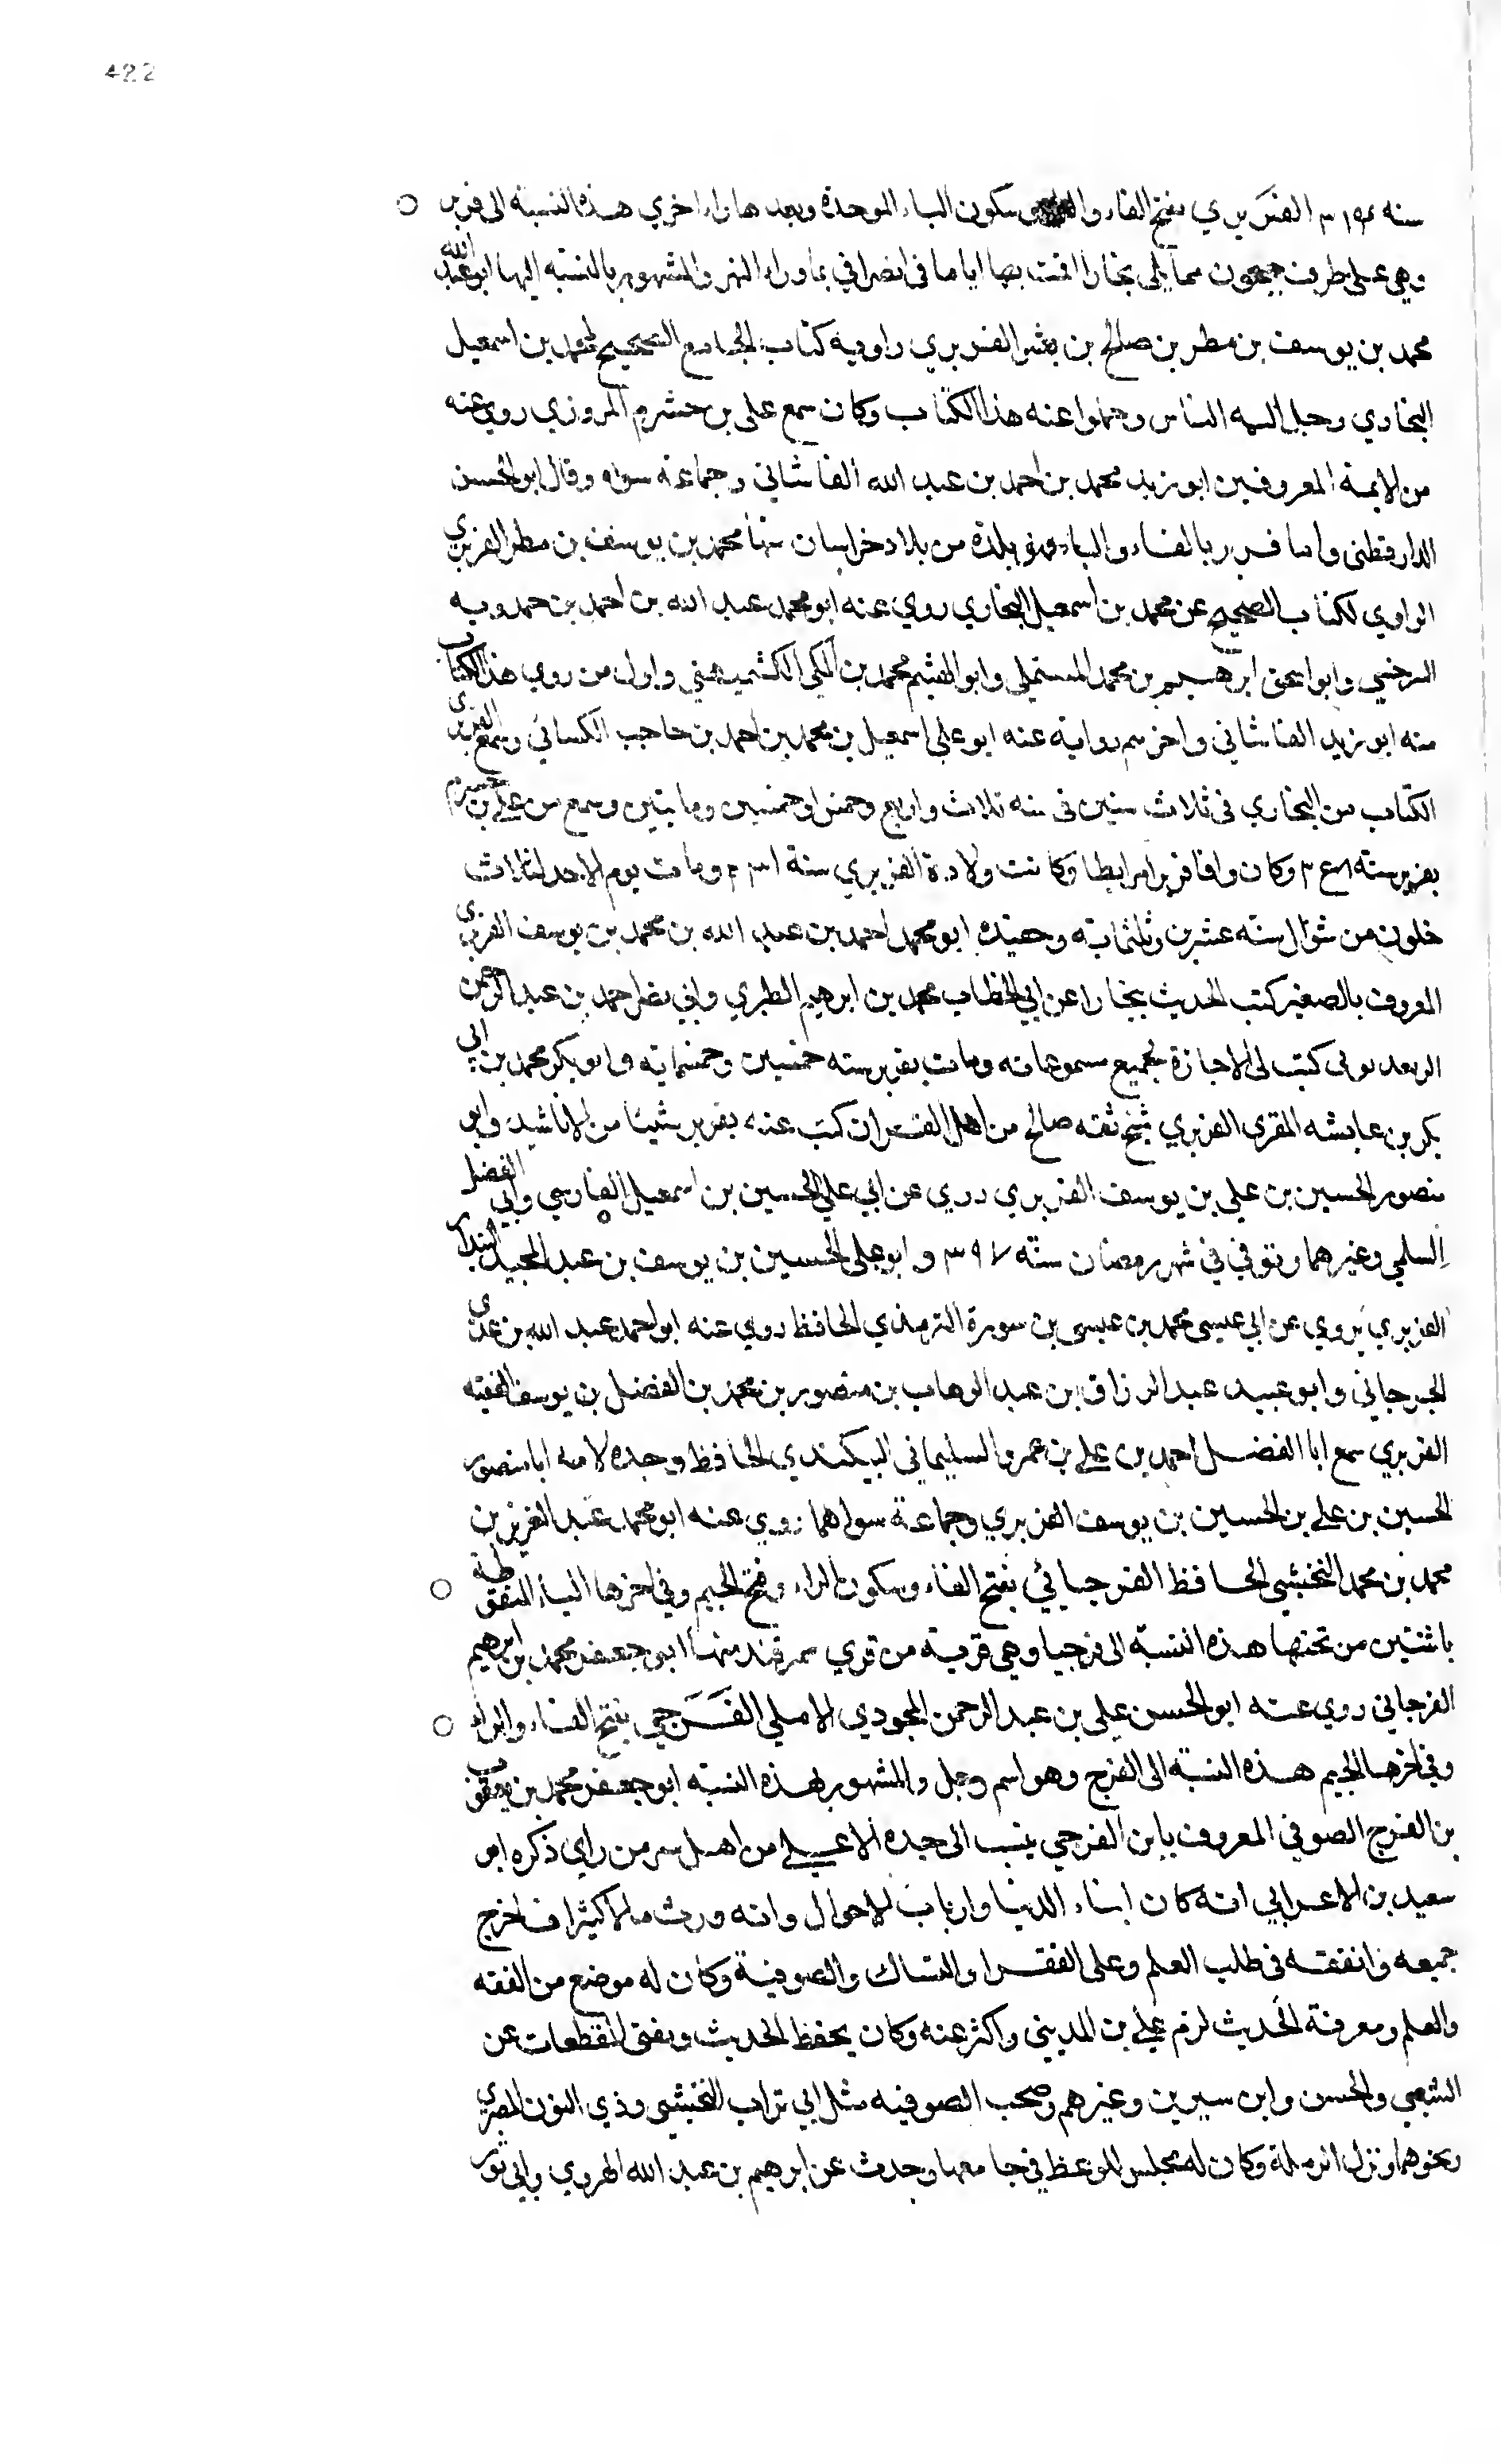 422
سنه ٣١٩٤ الفَرَبري بفتح الفاء وسكون الباء الموحدة وبعدها راء اخري هذه النسبة الى فربر
وهي على طرف جيحون مما يلى بخارا اقمت بها اياما فى انصرافي بماوراء النهر والمشهور بالنسبه اليها ابو عبد الله
محمد بن يوسف بن مطر بن صالح بن بشر الفربري راوية كتاب الجامع الصحيح لمحمد بن اسمعيل
البخاري رحل اليه الناس وحملوا عنه هذا الكتاب وكان سمع على بن خشرم المروزي روي عنه
من الايمة المعروفين ابو زيد محمد بن احمد بن عبد الله الفاشاني وجماعة سواه وقال ابو الحسن
الدارقطنى واما فربر بالفاء والباء فهو بلدة من بلاد خراسان منها محمد بن يوسف بن مطر الفربري
الراوي لكتاب الصحيح عن محمد بن اسمعيل البخاري روي عنه ابو محمد عبد الله بن احمد بن حمدويه
السرخسي وابو اسحق ابرهيم بن محمد المستملي وابو الهيثم محمد بن المكي الكشميهني واول من روي هذا الكتاب
منه ابو زيد الفاشاني واخرهم رواية عنه ابو علي اسمعيل بن محمد بن احمد بن حاجب الكسائي وسمع الفربري
الكتاب من البخاري فى ثلاث سنين فى سنه ثلاث واربع وخمس وخمسين ومايتين وسمع من علي بن خشرم
بفربر سنه وكان وافا فربر مرابطا وكانت ولادة الفربري سنة ٢٣١ ومات يوم الاحد لثلاث
خلون من شوال سنه عشرين وثلثمائه وحفيده ابو محمد احمد بن عبد الله بن محمد بن يوسف الفربري
المعروف بالصغير كتب الحديث بخارا عن ابي الخطاب محمد بن ابرهيم الطبري وابي نصر احمد بن عبد الرحمن
كتب لى الاجازة بجميع مسموعاته ومات بفربر سنه خمسين وخمسمايه وابو بكر محمد بن ابي
بكر بن عايشه المقرى الفربري شيخ ثقه صالح من اهل القران كتبت عنه بفربر شيئا من الاناشيد وابو
منصور الحسين بن علي بن يوسف الفربري روي عن ابي علي الحسين بن اسمعيل الفارسي وابي الفضل
السلمي وغيرهما وتوفي في شهر رمضان سنه ٣٩٧ و ابو على الحسين بن يوسف بن عبد المجيد البندار
الفربري يروي عن ابي عيسى محمد بن عيسى بن سورة الترمذي الحافظ روي عنه ابو احمد عبد الله بن عدى
الجرجاني وابو عبيد عبد الرزاق بن عبد الوهاب بن منصور بن محمد بن الفضل بن يوسف الفقيه
الفربري سمع ابا الفضل احمد بن علي بن عمرو السليماني البيكندي الحافظ وجده لامه ابا منصور
الحسين بن علي بن الحسين بن يوسف الفربري وجماعة سواهما روي عنه ابو محمد عبد العزيز بن
محمد بن محمد النخشبي الحافظ الفرجيائي بفتح الفاء وسكون الراء وفتح الجيم وفي اخرها الياء المنقوطة
باثنتين من تحتها هذه النسبة الى فرجيا وهي قرية من قري سمرقند منها ابو جعفر محمد بن ابرهيم
الفرجائي روي عنه ابو الحسن علي بن عبد الرحمن الاملي الفَرَجي بفتح الفاء والراء
وفي اخرها الجيم هذه النسبة الى الفرج وهو اسم رجل والمشهور بهذه النسبه ابو جعفر محمد بن يعقوب
بن الفرج الصوفي المعروف بابن الفرجي ينسب الى جده الاعلي من اهل سر من راي ذكره ابو
سعيد بن الاعرابي انه كان ابناء الدنيا وارباب الاحوال وانه ورث مالا كثيرا فاخرج
جميعه وانفقه فى طلب العلم وعلى الفقرا والنساك والصوفية وكان له موضع من الفقه
والعلم ومعرفة الحديث لزم علي بن المديني واكثر عنه وكان يحفظ الحديث ويفتى عن
الشعبي والحسن وابن سيرين وغيرهم وصحب الصوفيه مثل ابي تراب النخشبي وذي النون المصري
ونحوهما ونزل الرملة وكان له مجلس للوعظ في جامعها وحدث عن ابرهيم بن عبد الله الهروي وابي ثور